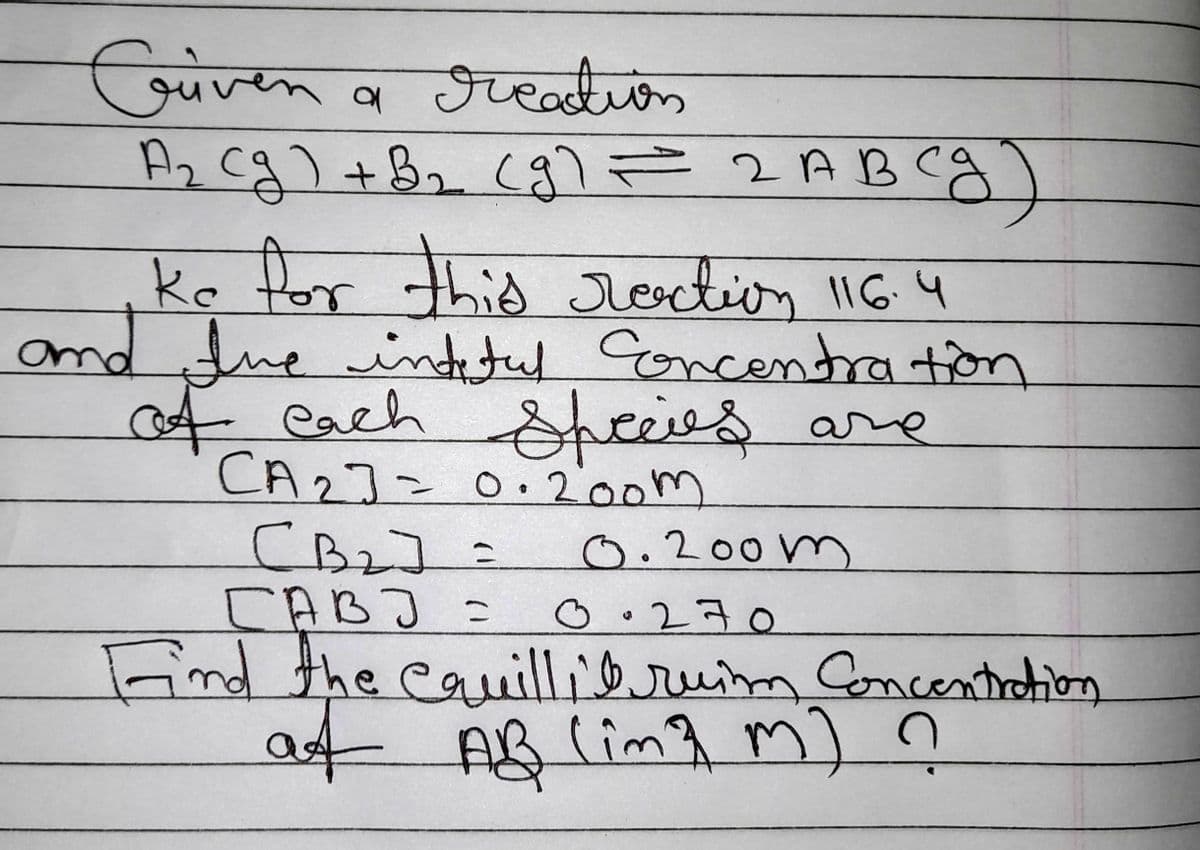 Given a reaction
A₂ (g) + B₂ (g) ⇌ 2 A B (g)
kc for this reaction 116.4
and the intital Concentration
of each Species are
[A₂] = 0.200m
[B₂] = 0.200m
[AB] = 0.270
Find the equillibruim Concentration
of AB (in m) ?